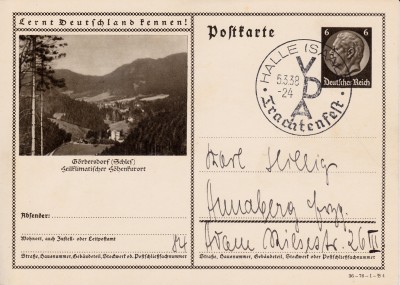 Lernt Deutschland kennen!
Postkarte
6 6
Deutsches Reich
HALLE (SAALE)
5.3.38
-24
VDA
Trachtenfest
Görbersdorf (Schles)
Heilklimatischer Höhenkurort
Absender:
Wohnort, auch Zustell- oder Leitpostamt
Straße, Hausnummer, Gebäudeteil, Stockwerk od. Postschließfachnummer
Karl Hillig
Annaberg Erzg.
Adam Riesestr. 26 II
Straße, Hausnummer, Gebäudeteil, Stockwerk oder Postschließfachnummer